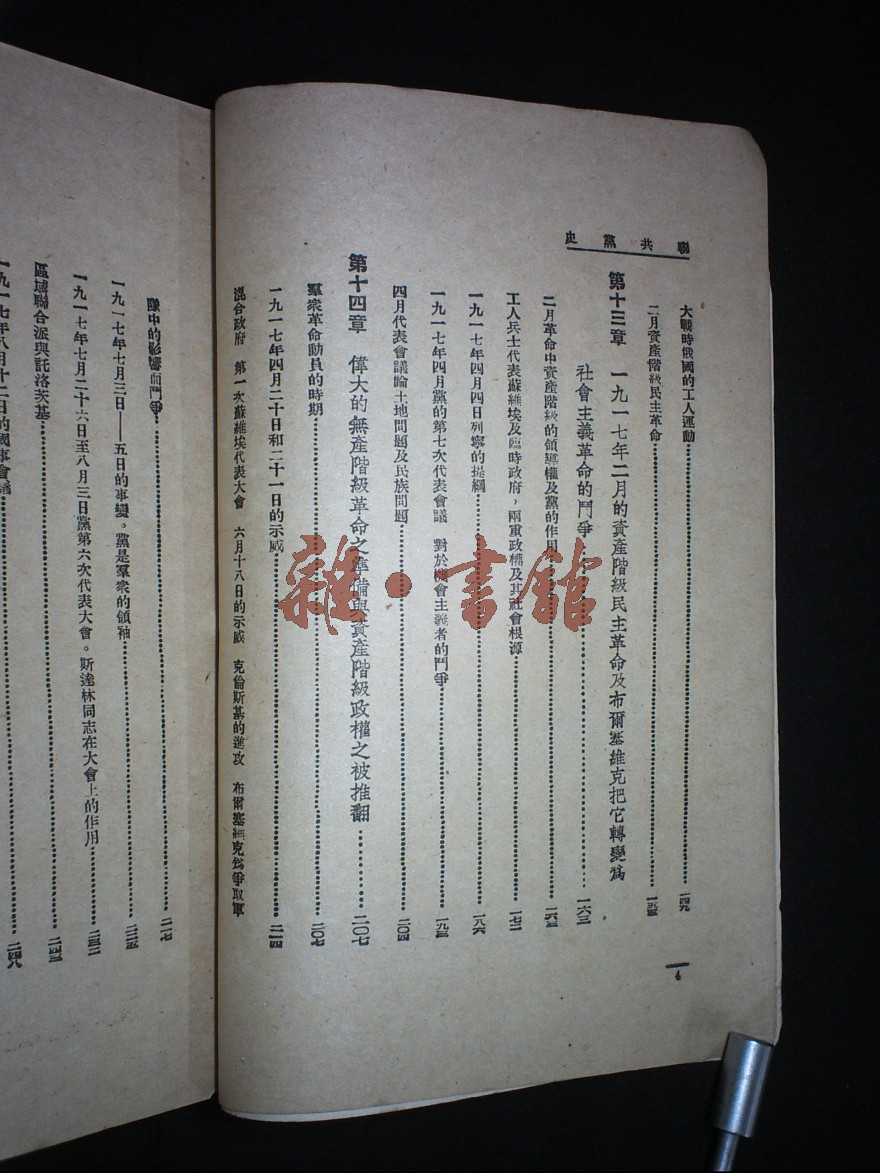 聯共黨史
大戰時俄國的工人運動……一四九
二月資產階級民主革命……一五五
第十三章　一九一七年二月的資產階級民主革命及布爾塞維克把它轉變爲
社會主義革命的鬥爭……一六三
二月革命中資產階級的領導權及黨的作用……一六三
工人兵士代表蘇維埃及臨時政府，兩重政權及其社會根源……一七二
一九一七年四月四日列寧的提綱……一八六
一九一七年四月黨的第七次代表會議　對於機會主義者的鬥爭……一九三
四月代表會議論土地問題及民族問題……二〇四
第十四章　偉大的無產階級革命之準備與資產階級政權之被推翻……二〇七
羣衆革命動員的時期……二〇七
一九一七年四月二十日和二十一日的示威……二一四
混合政府　第一次蘇維埃代表大會　六月十八日的示威　克倫斯基的進攻　布爾塞維克爲爭取軍
4
隊中的影響而鬥爭……二一七
一九一七年七月三日——五日的事變。黨是羣衆的領袖……二三五
一九一七年七月二十六日至八月三日黨第六次代表大會。斯達林同志在大會上的作用……二三二
區域聯合派與託洛茨基……二四三
一九一七年八月十二日的國事會議……二四八
雜·書館